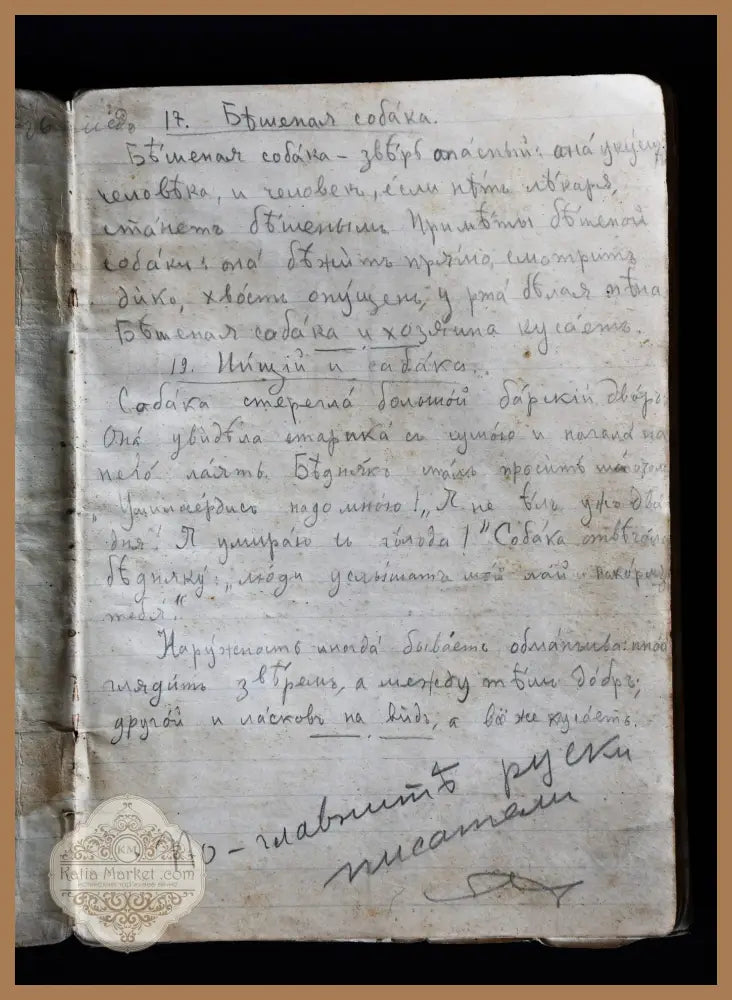 17. Бѣ́шеная соба́ка.
Бѣ́шеная соба́ка – звѣрь опа́сный: она́ уку́сит
человѣ́ка, и человек, е́сли нѣтъ лѣ́каря,
ста́нетъ бѣ́шеным. Примѣ́ты бѣ́шеной
соба́ки: она́ бѣжи́тъ пря́мо, смо́тритъ
ди́ко, хвостъ опу́щен, у рта́ бѣ́лая пѣ́на
Бѣ́шеная соба́ка и хозя́ина куса́етъ.
19. Ни́щій и саба́ка.
Саба́ка стерегла́ большо́й ба́рскій дворъ
Она́ уви́дѣла старика́ съ сумо́ю и начала́ на
него́ ла́ять. Бѣдня́къ сталъ проси́ть
„Умилосе́рдись надо мно́ю!„ Я не ѣлъ ужъ два
дня! Я умира́ю съ го́лода!" Соба́ка отвѣча́ла
бѣдняку́: „лю́ди услы́шатъ мой лай и нако́рмятъ
тебя́."
Нару́жность иногда́ быва́етъ обма́нчива: ино́й
гляди́тъ звѣ́ремъ, а между тѣ́мъ добръ;
друго́й и ла́сковъ на видъ, а всё же куса́етъ.
– главнитѣ руски
писатели
Katia Market .com
KM